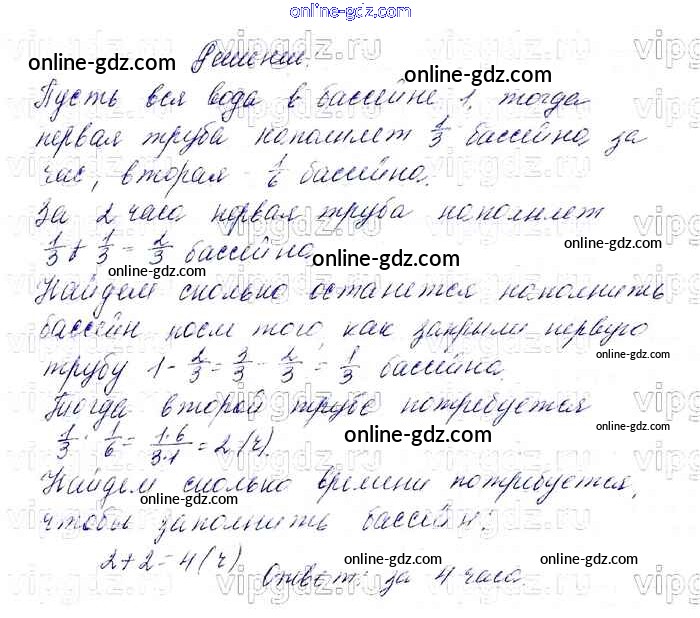 online-gdz.com
Решение.
Пусть вся вода в бассейне 1, тогда
первая труба наполняет 1/3 бассейна за
час, вторая - 1/6 бассейна.
За 2 часа первая труба наполняет
1/3 + 1/3 = 2/3 бассейна.
Найдем сколько останется наполнить
бассейн после того, как закрыли первую
трубу 1 - 2/3 = 3/3 - 2/3 = 1/3 бассейна.
Тогда второй трубе потребуется
1/3 : 1/6 = 1·6/3·1 = 2 (ч).
Найдем сколько времени потребуется,
чтобы заполнить бассейн:
2 + 2 = 4 (ч)
Ответ: за 4 часа.
online-gdz.com
online-gdz.com
online-gdz.com
online-gdz.com
online-gdz.com
online-gdz.com
online-gdz.com
online-gdz.com
online-gdz.com
online-gdz.com
online-gdz.com
online-gdz.com
online-gdz.com